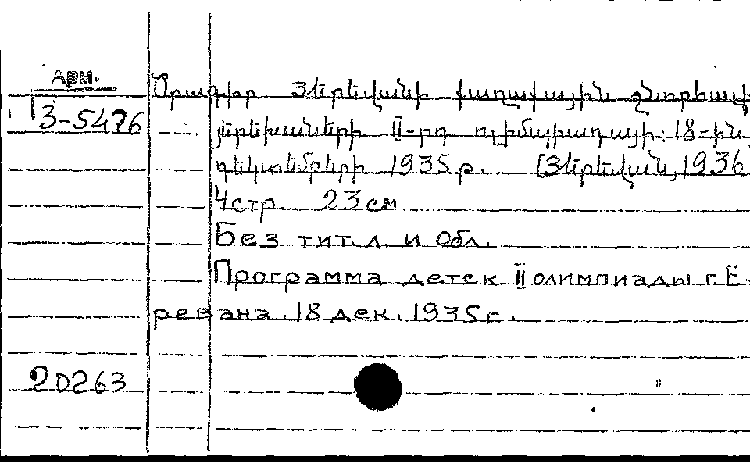 АРМ.
Ծրագիր Յերեվանի քաղաքային
3-5476
յերեխաների II-րդ ոլիմպիադայի: 18-ին
դեկտեմբերի 1935թ. [Յերեվան, 1936
4стр. 23см
Без тит. л и обл.
Программа детск II олимпиады г. Е-
ревана. 18 дек. 1935г.
20263